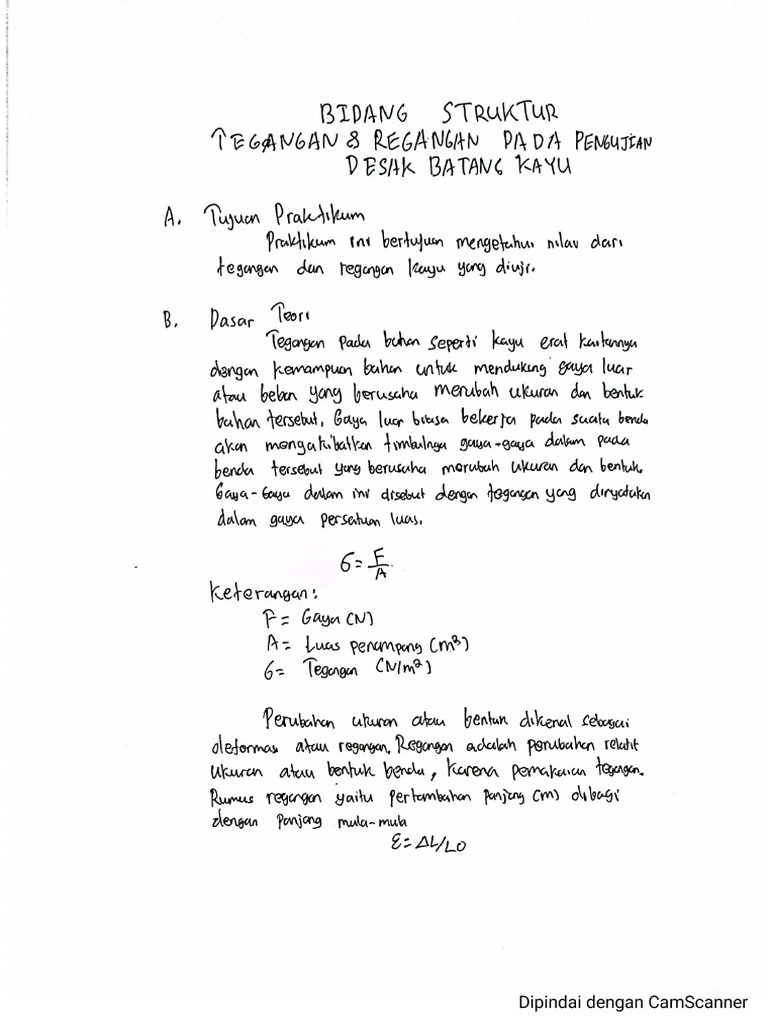 BIDANG STRUKTUR
TEGANGAN & REGANGAN PADA PENGUJIAN
DESAK BATANG KAYU
A. Tujuan Praktikum
Praktikum ini bertujuan mengetahui nilai dari
tegangan dan regangan kayu yang diuji.
B. Dasar Teori
Tegangan pada bahan seperti kayu erat kaitannya
dengan kemampuan bahan untuk mendukung gaya luar
atau beban yang berusaha merubah ukuran dan bentuk
bahan tersebut. Gaya luar biasa bekerja pada suatu benda
akan mengakibatkan timbulnya gaya-gaya dalam pada
benda tersebut yang berusaha merubah ukuran dan bentuk.
Gaya-Gaya dalam ini disebut dengan tegangan yang dinyatakan
dalam gaya persatuan luas.
σ = F/A
Keterangan:
F = Gaya (N)
A = Luas penampang (m³)
σ = Tegangan (N/m²)
Perubahan ukuran atau bentuk dikenal sebagai
deformasi atau regangan. Regangan adalah perubahan relatif
ukuran atau bentuk benda, karena pemakaian tegangan.
Rumus regangan yaitu pertambahan panjang (m) dibagi
dengan panjang mula-mula
ε = ΔL/L0
Dipindai dengan CamScanner